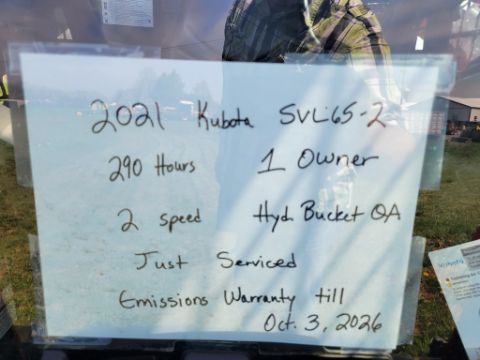 2021 Kubota SVL65-2
290 Hours 1 Owner
2 speed Hyd Bucket QA
Just Serviced
Emissions Warranty till
Oct. 3, 2026
Kubota